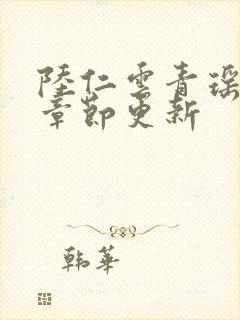 陸仁雲青瑶
章節更新
韩華